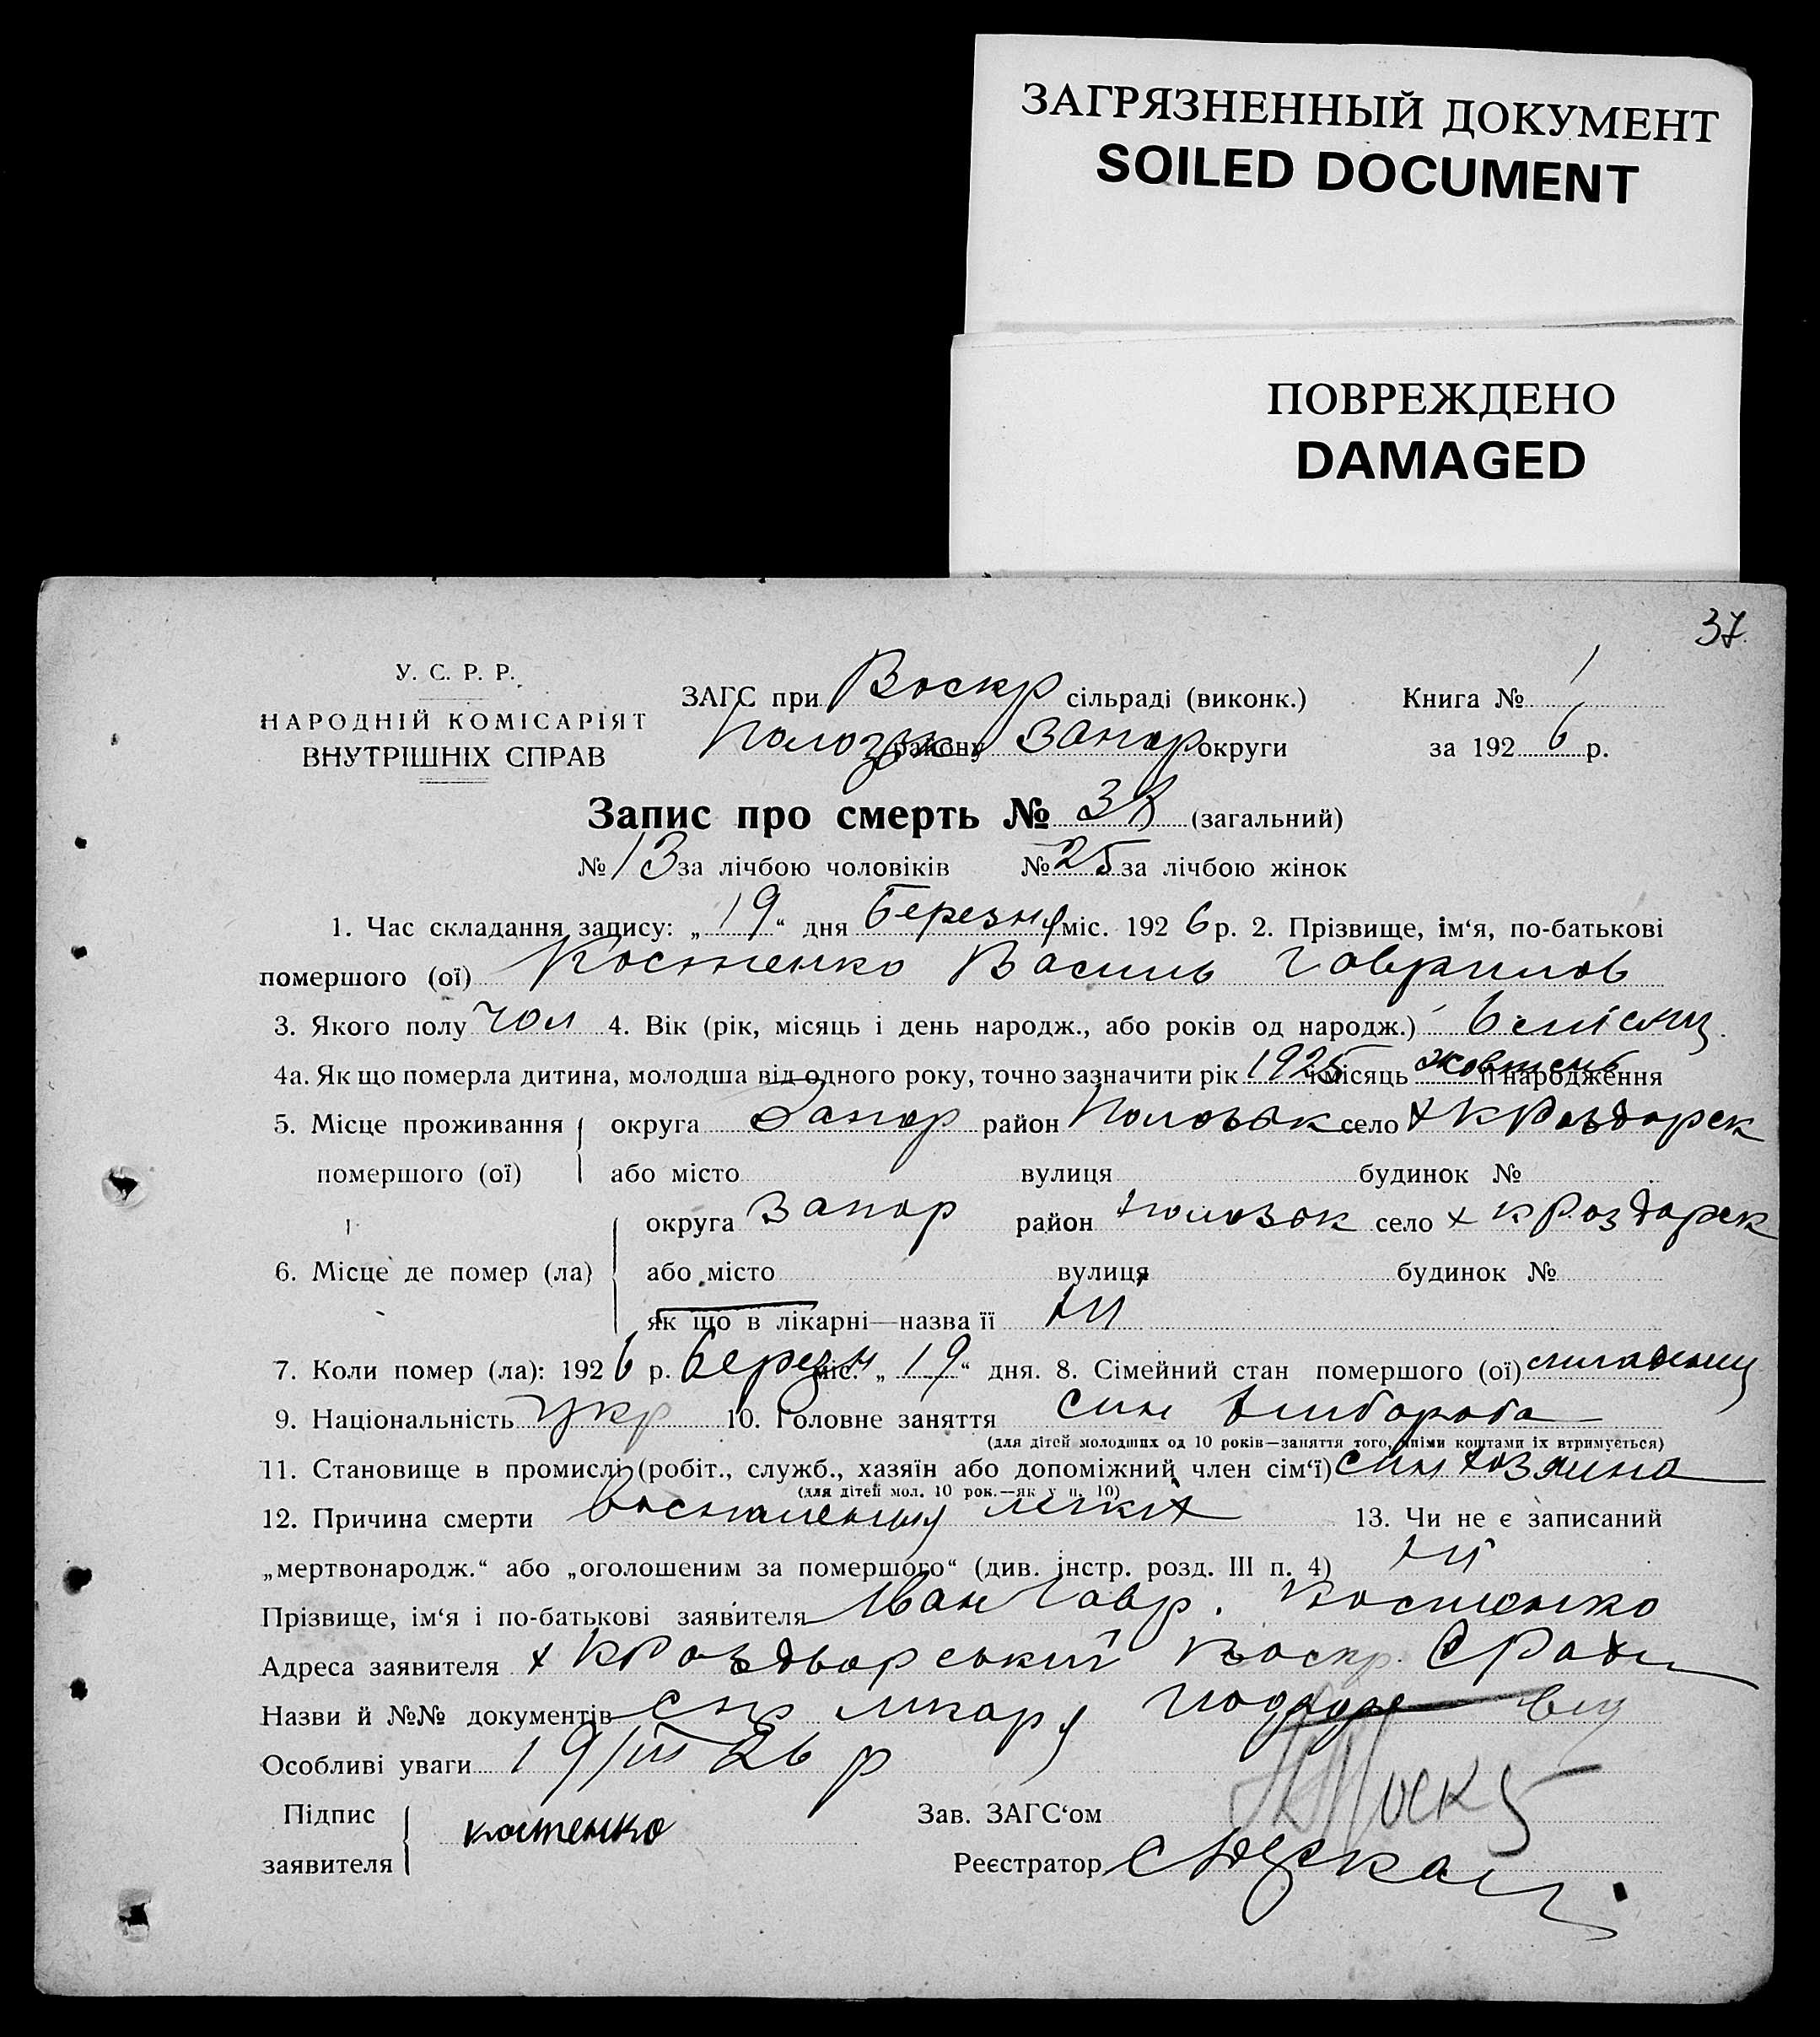 ЗАГРЯЗНЕННЫЙ ДОКУМЕНТ
SOILED DOCUMENT
ПОВРЕЖДЕНО
DAMAGED
37
У. С. Р. Р.
НАРОДНІЙ КОМІСАРІЯТ
ВНУТРІШНІХ СПРАВ
ЗАГС при Воскр сільраді (виконк.) Книга № 1
району Запор округи за 1926 р.
Запис про смерть № (загальний)
№ 13 за лічбою чоловіків № 25 за лічбою жінок
1. Час складання запису: „19“ дня березня міс. 1926 р. 2. Прізвище, ім‘я, по-батькові
помершого (ої) Костенко Василь Гаврилов
3. Якого полу чол 4. Вік (рік, місяць і день народж., або років од народж.) 6 місяц
4а. Як що померла дитина, молодша від одного року, точно зазначити рік 1925 й місяць жовтень її народження
5. Місце проживання округа Запор район Пологвк село х К Роздорск
помершого (ої) або місто вулиця будинок №
округа Запор район село х К Роздорск
6. Місце де помер (ла) або місто вулиця будинок №
як що в лікарні—назва її ні
7. Коли помер (ла): 1926 р. березн міс. „19“ дня. 8. Сімейний стан помершого (ої)
9. Національність укр 10. Головне заняття син хлібороба
(для дітей молодших од 10 років—заняття того, чиїми коштами їх втримується)
11. Становище в промислі (робіт., служб., хазяїн або допоміжний член сім‘ї) син хозяина
(для дітей мол. 10 рок.—як у п. 10)
12. Причина смерти легких 13. Чи не є записаний
„мертвонародж.“ або „оголошеним за помершого“ (див. інстр. розд. III п. 4) ні
Прізвище, ім‘я і по-батькові заявителя Іван Гавр. Костенко
Адреса заявителя х К Воскр. С Ради
Назви й №№ документів лікаря від
Особливі уваги 19/III 26 р
Підпис Зав. ЗАГС‘ом
заявителя Костенко Реєстратор